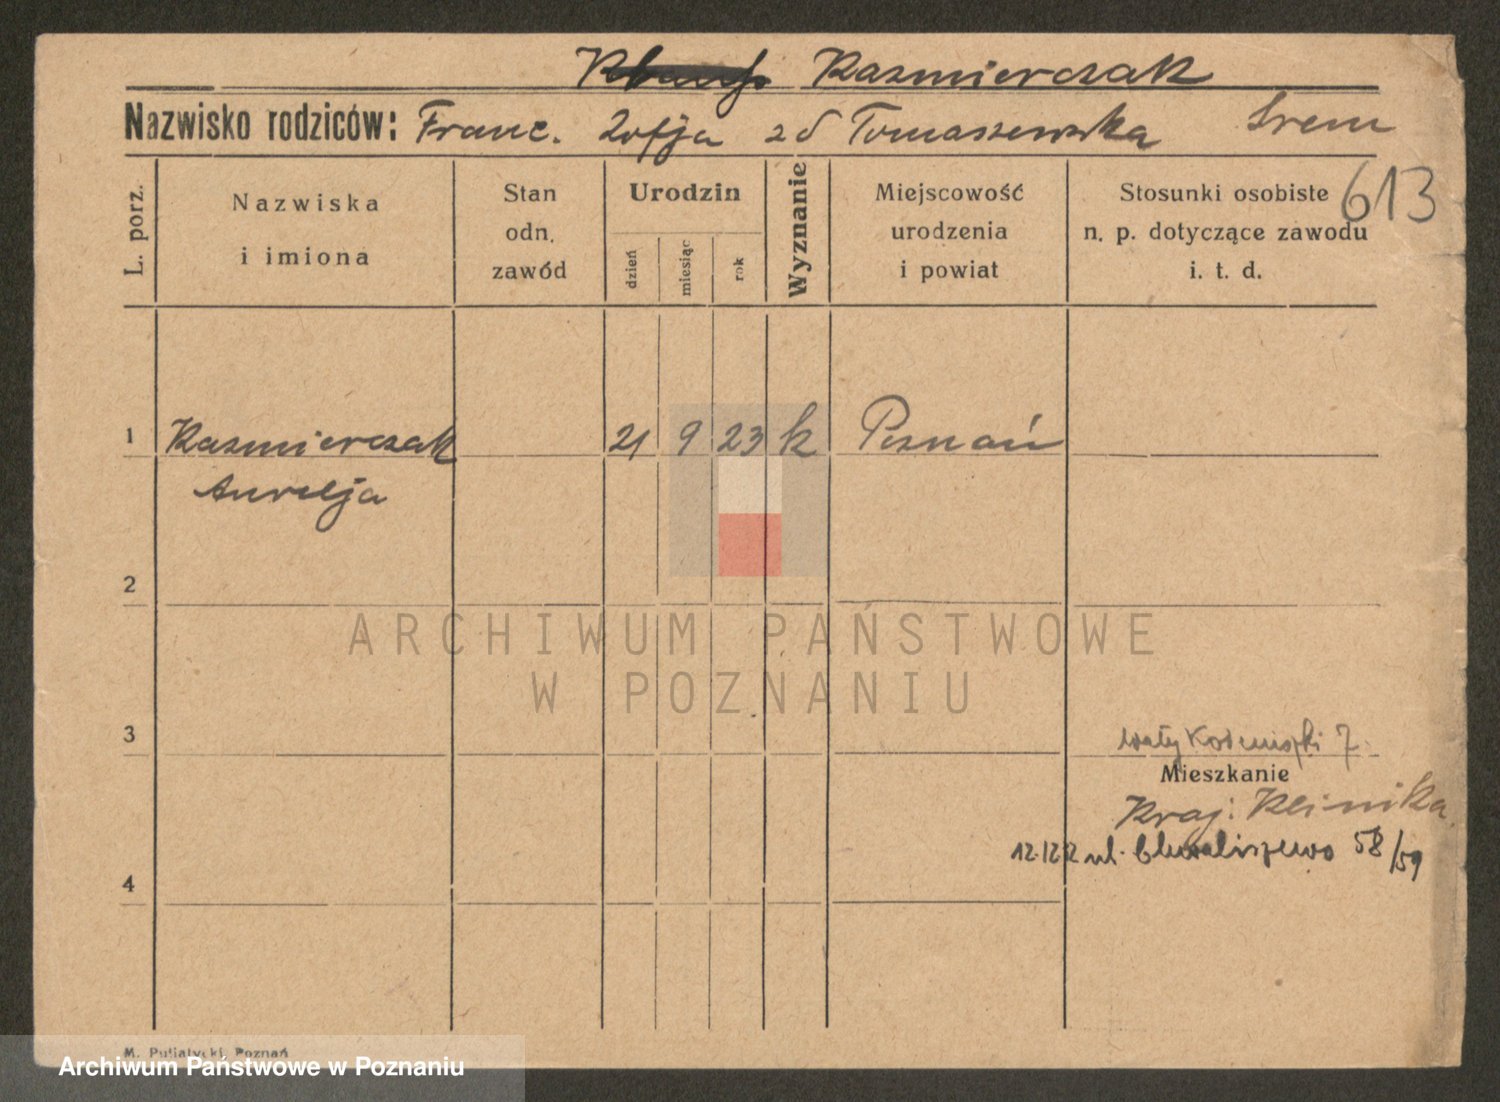 Kazmierczak
Nazwisko rodziców: Franc. Zofja zd Tomaszewska Srem
613
L. porz.
Nazwiska
i imiona
Stan
odn.
zawód
Urodzin
dzień
miesiąc
rok
Wyznanie
Miejscowość
urodzenia
i powiat
Stosunki osobiste
n. p. dotyczące zawodu
i. t. d.
1 Kazmierczak 21 9 23 k Poznań
Aurelja
2
ARCHIWUM PAŃSTWOWE
W POZNANIU
3
7.
Mieszkanie
Kraj. Klinika
ul. 58/59
4
M. Putiatycki, Poznań
Archiwum Państwowe w Poznaniu